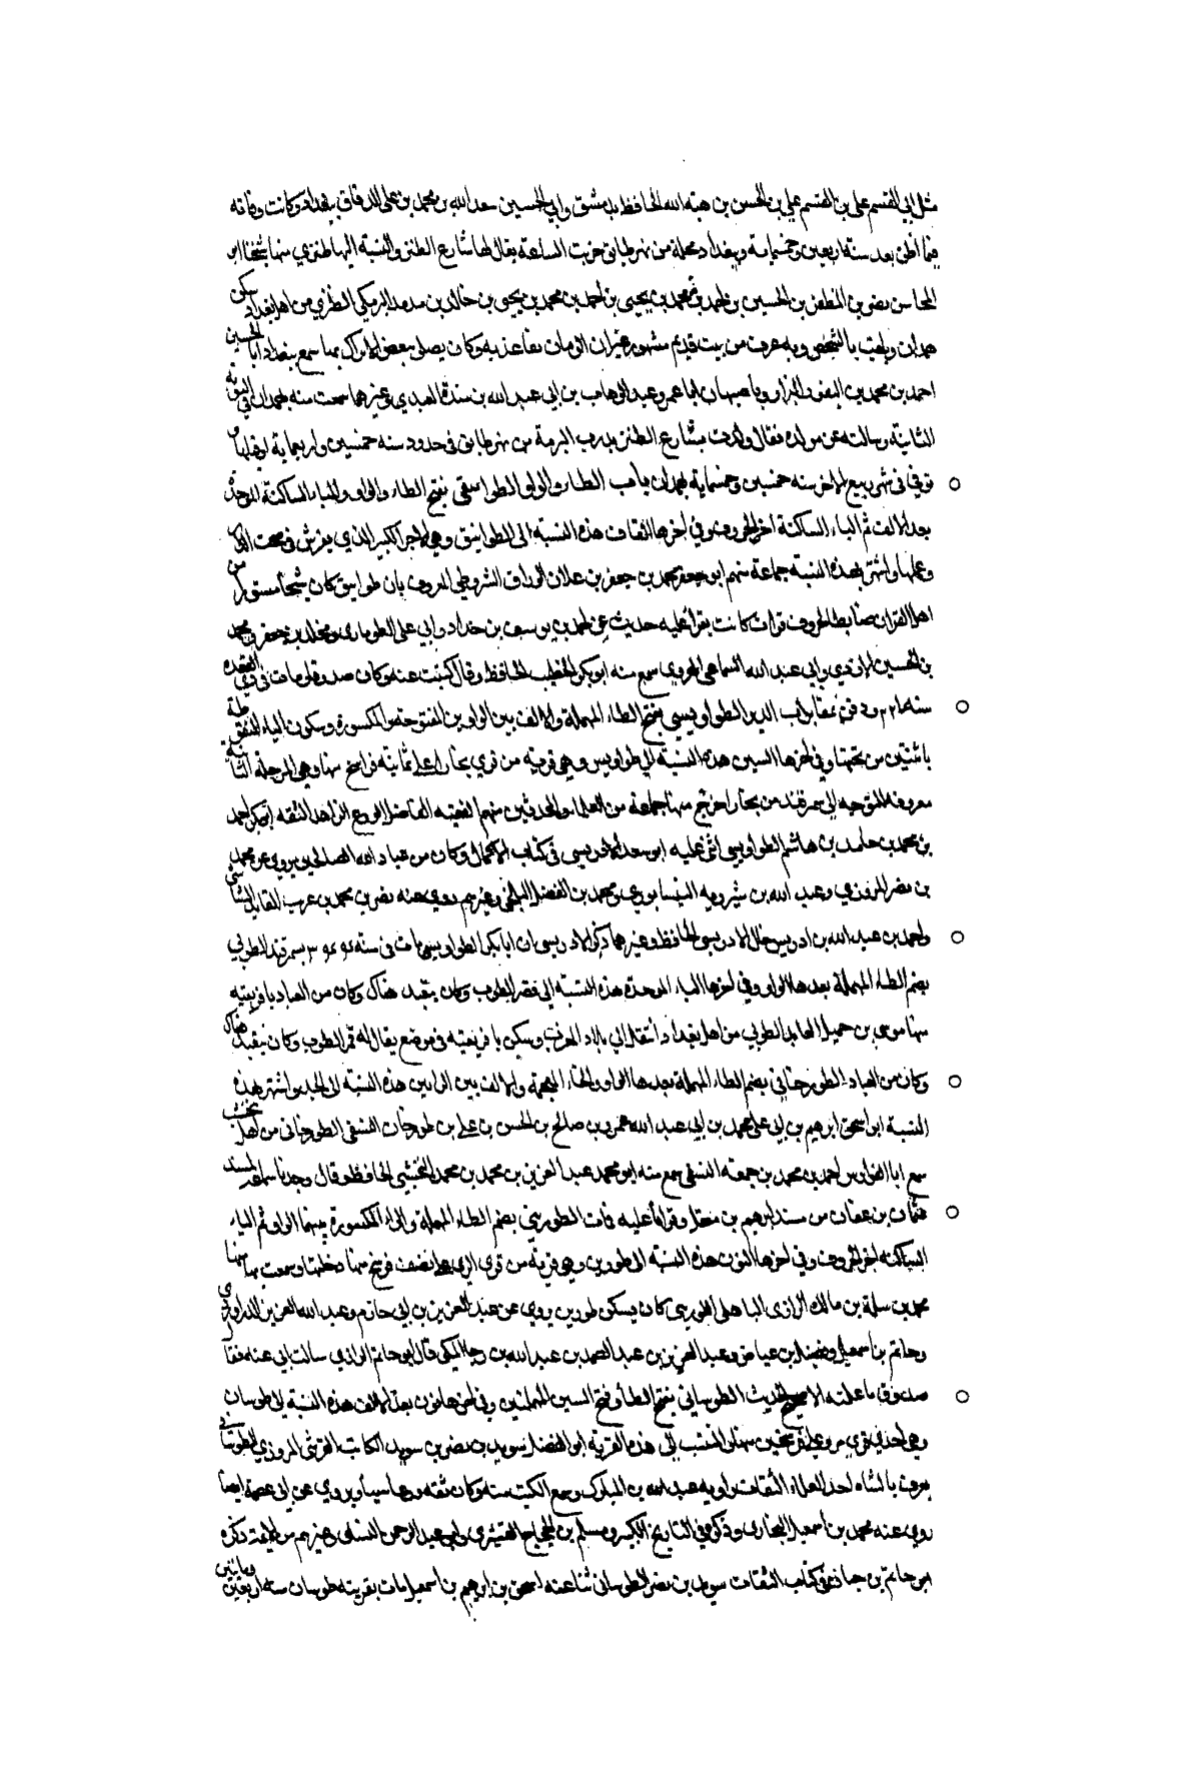 مثل ابي القسم علي بن القسم علي بن الحسن بن هبة الله الحافظ بدمشق وابي الحسين سعد الله بن محمد بن علي الدقاق ببغداد وكانت وفاته
فيما اظن بعد سنة اربعين وخمسماية وببغداد محلة من نهر طابق خربت الساعة يقال لها شارع الطنز والنسبة اليها طنزي منها شيخنا ابو
المحاسن نصر بن المظفر بن الحسين بن احمد بن محمد بن يحيى بن احمد بن محمد بن يحيى بن خالد بن برمك البرمكي الطنزي من اهل بغداد سكن
همدان ويلقب بالشخص وبه عرف من بيت قديم مشهور غير ان الزمان تقاعد به وكان يصلي ببعض الاتراك بها سمع ببغداد ابا الحسين
احمد بن محمد بن النقور البزاز وباصبهان ابا عمرو عبد الوهاب بن ابي عبد الله بن مندة العبدي وغيرهما سمعت منه بهمدان في النوبة
الثانية وسالته عن مولده فقال ولدت بشارع الطنز بدرب البرمة من نهر طابق في حدود سنه خمسين واربعماية او قبلها
توفي في شهر ربيع الاخر سنه خمسين وخمسماية بهمدان باب الطاء والواو الطوابيقي بفتح الطاء والواو والباء الساكنة الموحدة
بعد الالف ثم الياء الساكنة اخر الحروف وفي اخرها القاف هذه النسبة الى الطوابيق وهي الاجر الكبير الذي يفرش في صحن الدار
وعملها واشتهر بهذه النسبة جماعة منهم ابو جعفر محمد بن جعفر بن علان الوراق الشروطي المعروف بان طوابيق كان شيخا مستورا من
اهل القران ضابطا لحروف قرات كانت يقرا عليه حديث عن احمد بن يوسف بن خلاد وابي علي الطوماري ومخلد بن جعفر ومحمد
بن الحسين الازدي وابي عبد الله الشماخي الهروي سمع منه ابو بكر الخطيب الحافظ وقال كتبت عنه وكان صدوقا ومات في ذي القعدة
سنه ودفن بمقابر باب الدير الطواويسي بفتح الطاء المهملة والالف بين الواوين المفتوحة والمكسورة وسكون الياء المنقوطة
باثنتين من تحتها وفي اخرها السين هذه النسبة الى طواويس وهي قرية من قري بخارا على ثمانية فراسخ منها وهي المرحلة الثانية
معروفة للمتوجه الى سمرقند من بخارا خرج منها جماعة من العلماء والمحدثين منهم الفقيه الفاضل الورع الزاهد الثقه ابو بكر احمد
بن محمد بن حامد بن هاشم الطواويسي اثنى عليه ابو سعد الادريسي في كتاب الاكمال وكان من عباد الله الصالحين يروي عن محمد
بن نصر المروزي وعبد الله بن شيرويه النيسابوري ومحمد بن الفضل البلخي وغيرهم روي عنه نصر بن محمد بن غريب القايد الشاشي
واحمد بن عبد الله بن ادريس خال الادريسي الحافظ وغيرهما ذكر الادريسي ان ابا بكر الطواويسي مات في سنه بسمرقند الطوبي
بضم الطاء المهملة بعدها الواو وفي اخرها الباء الموحدة هذه النسبة الى قصر الطوب وكان يتعبد هناك وكان من العباد بافريقيه
منها موسى بن جميل العابد الطوبي من اهل بغداد انتقل الى بلاد المغرب وسكن بافريقيه في موضع يقال له قصر الطوب وكان يتعبد هناك
وكان من العباد الطوزخاني بضم الطاء المهملة بعدها الواو والخاء المعجمة والالف بين الزايين هذه النسبة الى الجد واشتهر بهذه
النسبة ابو اسحق ابرهيم بن ابي علي محمد بن ابي عبد الله عمرو بن صالح بن الحسن بن علي بن طورخان النسفي الطورخاني من اهل نخشب
سمع ابا الفوارس احمد بن محمد بن جمعة النسفي سمع منه ابو محمد عبد العزيز بن محمد بن محمد النخشبي الحافظ وقال وجدنا سماعه لمسند
عثمان بن عفان من مسند ابرهيم بن معقل وقراناه عليه فات الطوريني بضم الطاء المهملة والراء المكسورة بينهما الواو ثم الياء
الساكنه اخر الحروف وفي اخرها النون هذه النسبة الى طورين وهي قرية من قري الري على نصف فرسخ منها دخلتها وسمعت بها منها
محمد بن سلمة بن مالك الرازي الباهلي الطوريني كان يسكن طورين يروي عن عبد العزيز بن ابي حازم وعبد الله العزيز الدراوردي
وحاتم بن اسمعيل وفضيل بن عياض وعبد العزيز بن عبد الصمد بن عبد الله بن رجا المكي قال ابو حاتم الرازي سالت ابي عنه فقال
صدوق ما علمته الا صحيح الحديث الطوساني بفتح الطاء وفتح السين المهملتين وفي اخرها نون بعد الالف هذه النسبة الى طوسان
وهي احدى قري مرو على فرسخين منها والمنتسب الى هذه القرية ابو الفضل سويد بن نصر بن سويد الكاتب القرشي المروزي الطوساني
يعرف بالشاه احد العلماء الثقات راويه عبد الله بن المبارك وسمع الكتب منه وكان ثقه ورعا سيدا ويروي عن ابي عصمة ايضا
روي عنه محمد بن اسمعيل البخاري وذكره في التاريخ الكبير ومسلم بن الحجاج القشيري وابو عبد الرحمن النسائي وغيرهم من الايمة ذكره
ابو حاتم بن حبان في كتاب الثقات سويد بن نصر الطوساني ثنا عنه اسحق بن ابرهيم بن اسمعيل مات بقريته طوسان سنه اربعين وماتين